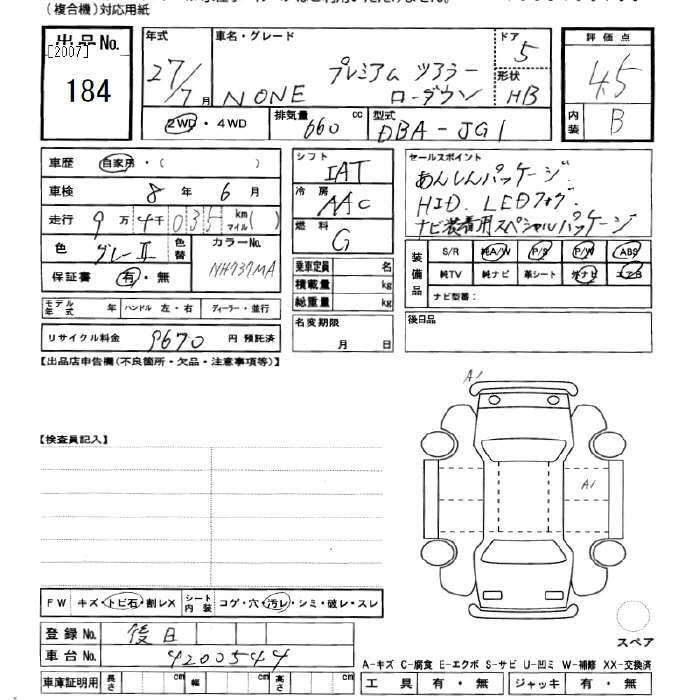 （複合機）対応用紙
出品No.
[2007]
184
年式
27/7 月
車名・グレード
プレミアム ツアラー
NONE ローダウン
ドア 5
形状 HB
評価点
4.5
内装 B
2WD・4WD
排気量 660 cc
型式 DBA-JG1
車歴 自家用・（ ）
車検 8 年 6 月
走行 9 万 4 千 035 km マイル( )
色 グレーII 色替
カラーNo. NH737MA
保証書 有・無
シフト IAT
冷房 AAC
燃料 G
乗車定員 名
積載量 kg
総重量 kg
セールスポイント
あんしんパッケージ.
HID. LEDフォグ
ナビ装着用スペシャルパッケージ
装備品
S/R 純A/W P/S P/W ABS
純TV 純ナビ 革シート 外ナビ エアB
ナビ型番：
モデル年式 年 ハンドル 左・右 ディーラー・並行
名変期限 月 日
後日品
リサイクル料金 9670 円 預託済
【出品店申告欄(不良箇所・欠品・注意事項等)】
A1
【検査員記入】
A1
FW キズ・トビ石・割レX
シート内装 コゲ・穴・汚レ・シミ・破レ・スレ
登録No. 後日
スペア
車台No. 4200544
A-キズ C-腐食 E-エクボ S-サビ U-凹ミ W-補修 XX-交換済
車庫証明用 長さ cm 幅 cm 高さ cm
工具 有・無 ジャッキ 有・無